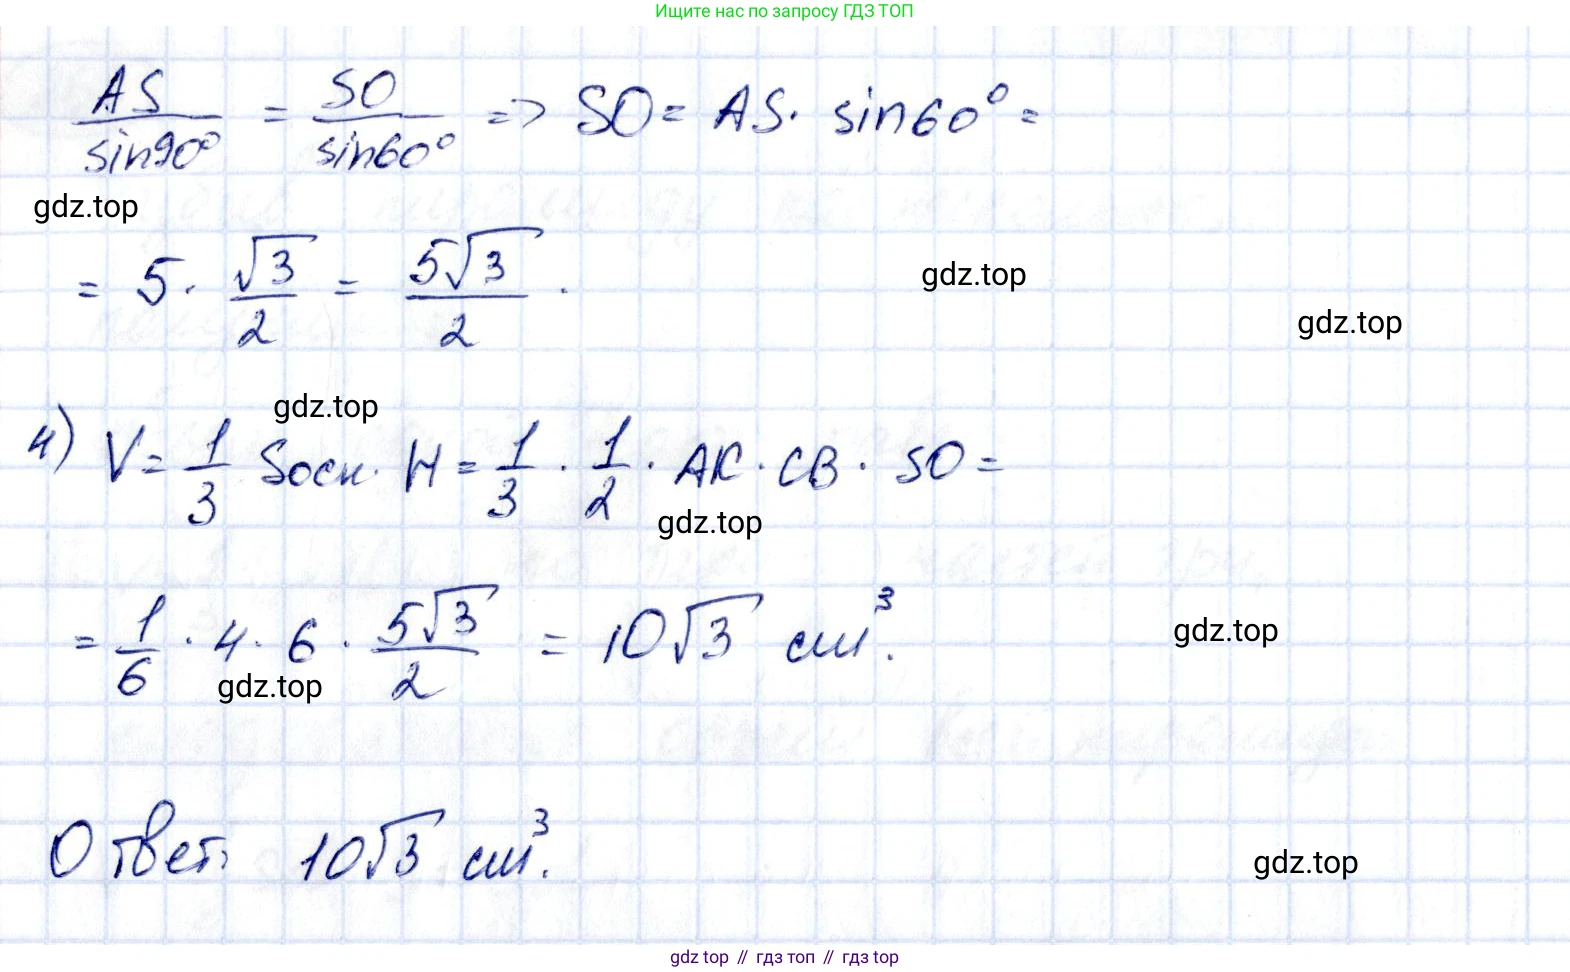 Ищите нас по запросу ГДЗ ТОП
AS/sin90° = SO/sin60° => SO = AS · sin60° =
gdz.top
= 5 · √3/2 = 5√3/2 .
gdz.top
gdz.top
gdz.top
4) V = 1/3 Sосн · H = 1/3 · 1/2 · AK · CB · SO =
gdz.top
= 1/6 · 4 · 6 · 5√3/2 = 10√3 см³.
gdz.top
gdz.top
Ответ: 10√3 см³.
gdz.top
gdz.top // гдз топ // гдз top